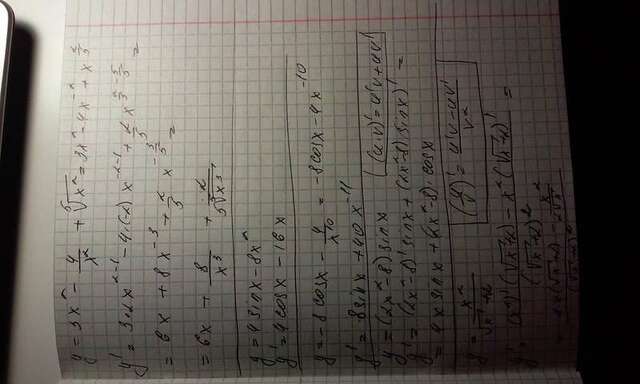 y = 3x² - 4/x² + ⁵√x² = 3x² - 4x⁻² + x^(2/5)
y' = 3·2x²⁻¹ - 4·(-2)x⁻²⁻¹ + 2/5 x^(2/5-5/5) =
= 6x + 8x⁻³ + 2/5 x^(-3/5) =
= 6x + 8/x³ + 2/(5 ⁵√x³)
y = 4sinx - 8x²
y' = 4cosx - 16x
y = -8cosx - 4/x¹⁰ = -8cosx - 4x⁻¹⁰
y' = 8sinx + 40x⁻¹¹
y = (2x² - 8) sinx (u·v)' = u'v + uv'
y' = (2x² - 8)' sinx + (2x² - 8)(sinx)' =
= 4x sinx + (2x² - 8)·cosx
y = x²/(√x + 2) (u/v)' = (u'v - uv')/v²
y' = ((x²)'(√x + 2) - x²(√x + 2)')/(√x + 2)² =
= (2x(√x + 2) - x²/(2√x))/(√x + 2)²